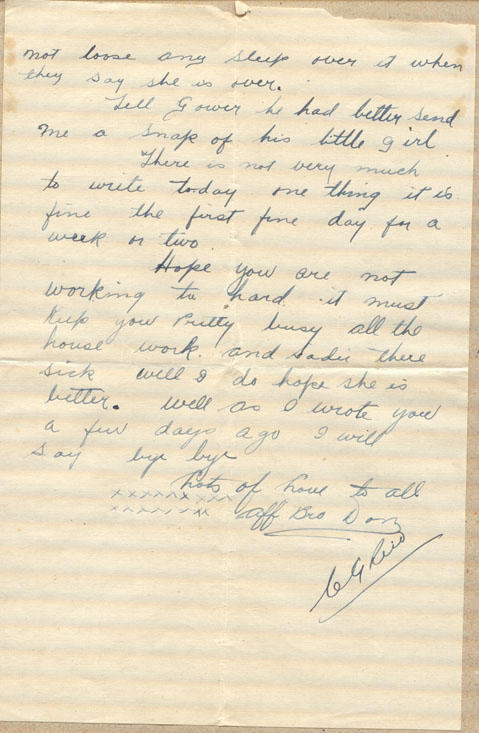 not loose any sleep over it when
they say she is over.
Tell Gower he had better send
me a snap of his little girl.
There is not very much
to write today. one thing it is
fine the first fine day for a
week or two.
Hope you are not
working to hard. it must
keep you pretty busy all the
house work. and sadie there
sick well I do hope she is
better. Well as I wrote you
a few days ago I will
say bye bye
Lots of Love to all
xxxxxxx xxxx
xxxxxxxx Aff Bro Don